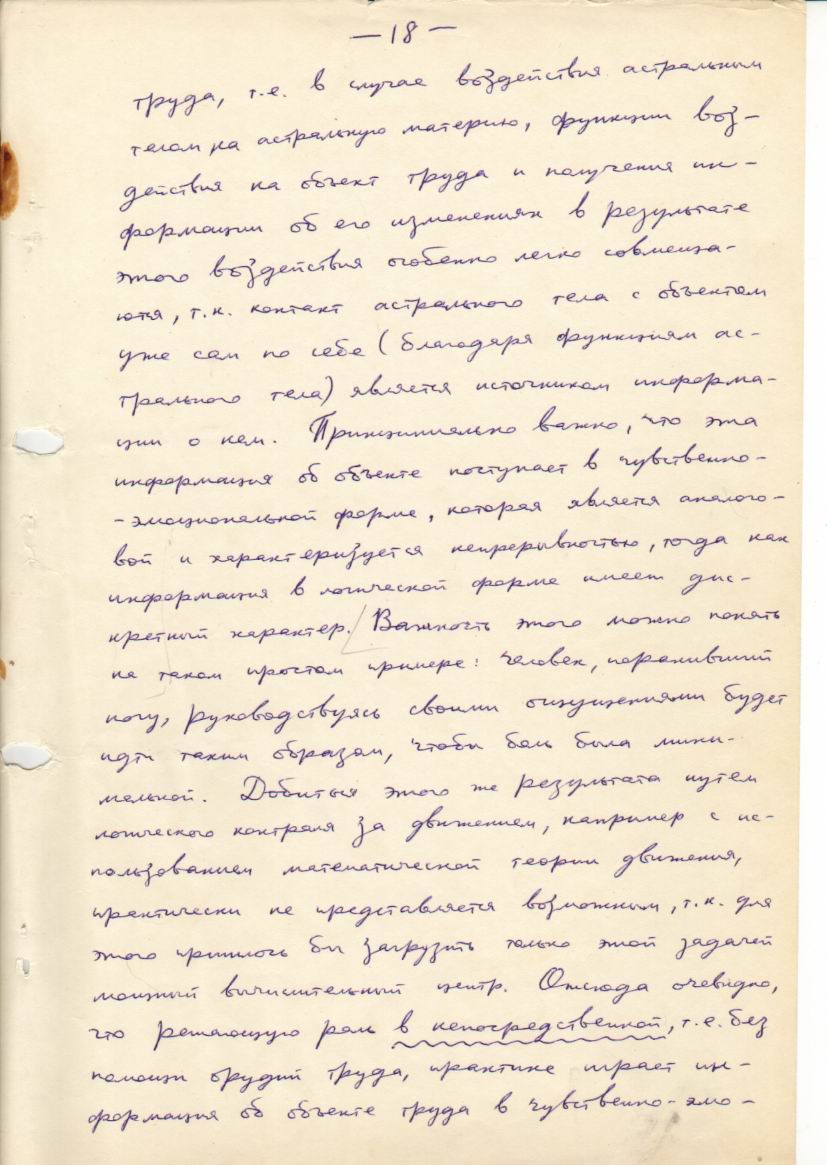 — 18 —
труда, т.е. в случае воздействия астральным
телом на астральную материю, функции воз-
действия на объект труда и получения ин-
формации об его изменениях в результате
этого воздействия особенно легко совмеща-
ются, т.к. контакт астрального тела с объектом
уже сам по себе (благодаря функциям ас-
трального тела) является источником информа-
ции о нем. Принципиально важно, что эта
информация об объекте поступает в чувственно-
-эмоциональной форме, которая является аналого-
вой и характеризуется непрерывностью, тогда как
информация в логической форме имеет дис-
кретный характер. Важность этого можно понять
на таком простом примере: человек, поранивший
ногу, руководствуясь своими ощущениями будет
идти таким образом, чтобы боль была мини-
мальной. Добиться этого же результата путем
логического контроля за движением, например с ис-
пользованием математической теории движения,
практически не представляется возможным, т.к. для
этого пришлось бы загрузить только этой задачей
мощный вычислительный центр. Отсюда очевидно,
что решающую роль в непосредственной, т.е. без
помощи орудий труда, практике играет ин-
формация об объекте труда в чувственно-эмо-